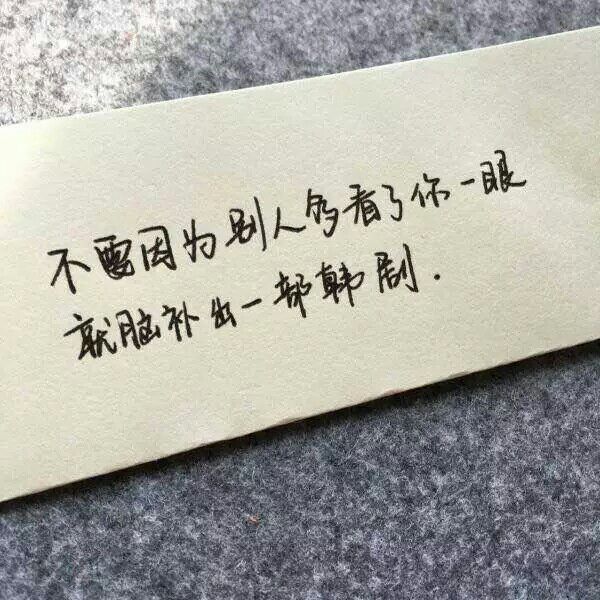 不要因为别人多看了你一眼
就脑补出一部韩剧.